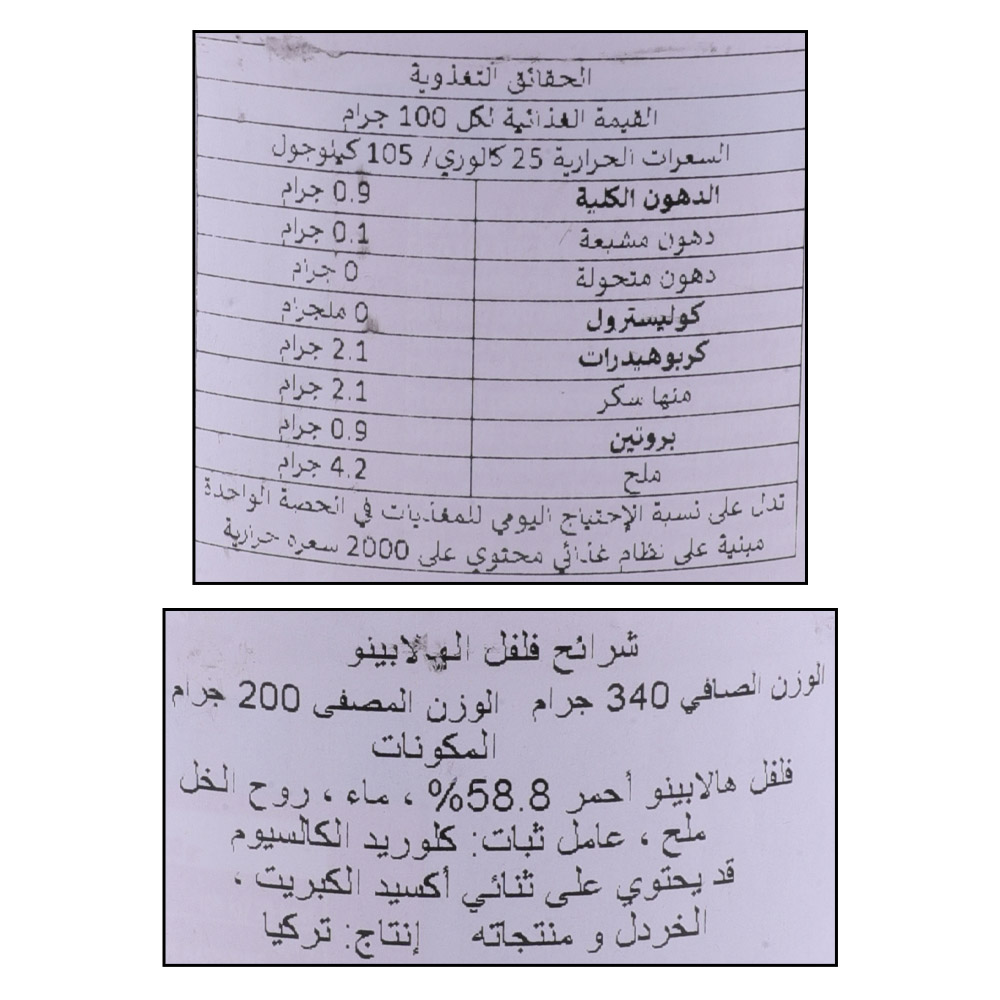 الحقائق التغذوية
القيمة الغذائية لكل 100 جرام
السعرات الحرارية 25 كالوري/ 105 كيلوجول
الدهون الكلية 0.9 جرام
دهون مشبعة 0.1 جرام
دهون متحولة 0 جرام
كوليسترول 0 ملجرام
كربوهيدرات 2.1 جرام
منها سكر 2.1 جرام
بروتين 0.9 جرام
ملح 4.2 جرام
تدل على نسبة الإحتياج اليومي للمغذيات في الحصة الواحدة
مبنية على نظام غذائي محتوي على 2000 سعره حرارية
شرائح فلفل الهالابينو
الوزن الصافي 340 جرام الوزن المصفى 200 جرام
المكونات
فلفل هالابينو أحمر 58.8% ، ماء ، روح الخل
ملح ، عامل ثبات: كلوريد الكالسيوم
قد يحتوي على ثنائي أكسيد الكبريت ،
الخردل و منتجاته إنتاج: تركيا